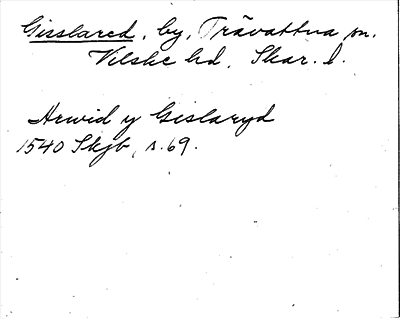 Gisslared, by, Trävattna sn.
Vilske hd, Skar. l.
Arwid y Gislaryd
1540 Skjb, s. 69.